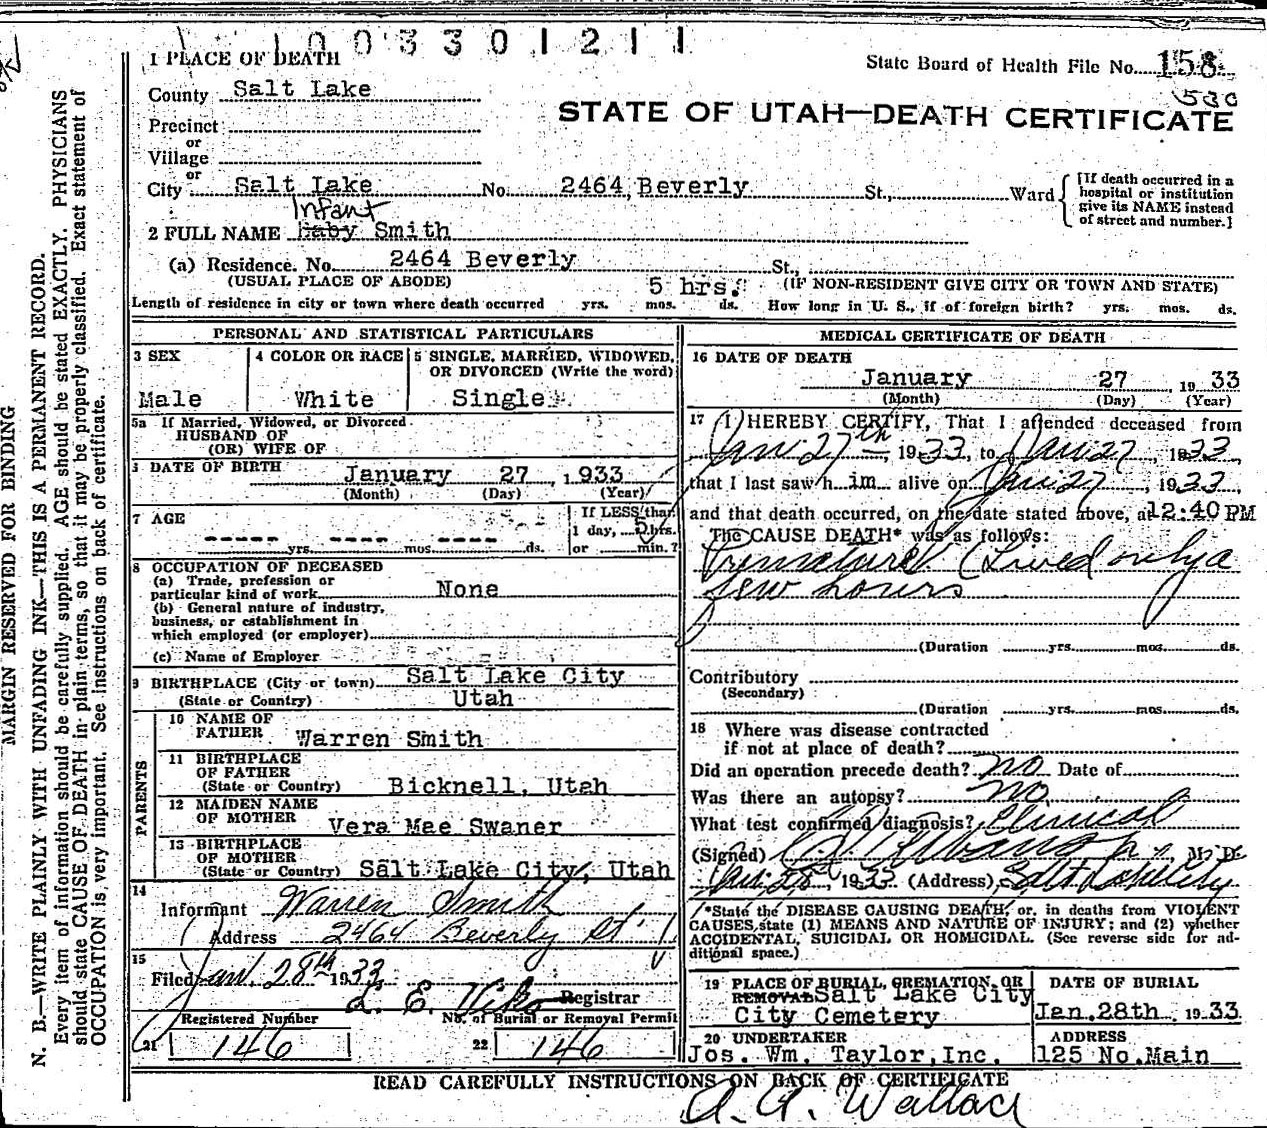 1003301211
1 PLACE OF DEATH
State Board of Health File No. 158
530
County Salt Lake
STATE OF UTAH—DEATH CERTIFICATE
Precinct
or
Village
or
City Salt Lake No. 2464 Beverly St., Ward [If death occurred in a hospital or institution give its NAME instead of street and number.]
Infant
2 FULL NAME baby Smith
(a) Residence. No. 2464 Beverly St.,
(USUAL PLACE OF ABODE) 5 hrs. (IF NON-RESIDENT GIVE CITY OR TOWN AND STATE)
Length of residence in city or town where death occurred yrs. mos. ds. How long in U. S., if of foreign birth? yrs. mos. ds.
PERSONAL AND STATISTICAL PARTICULARS
3 SEX
Male
4 COLOR OR RACE
White
5 SINGLE, MARRIED, WIDOWED, OR DIVORCED (Write the word)
Single
5a If Married, Widowed, or Divorced
HUSBAND OF
(OR) WIFE OF
DATE OF BIRTH January 27, 1933
(Month) (Day) (Year)
7 AGE
yrs. mos. ds.
If LESS than
1 day, 5 hrs.
or min.?
8 OCCUPATION OF DECEASED
(a) Trade, profession or
particular kind of work None
(b) General nature of industry,
business, or establishment in
which employed (or employer)
(c) Name of Employer
9 BIRTHPLACE (City or town) Salt Lake City
(State or Country) Utah
PARENTS
10 NAME OF
FATHER Warren Smith
11 BIRTHPLACE
OF FATHER
(State or Country) Bicknell, Utah
12 MAIDEN NAME
OF MOTHER Vera Mae Swaner
13 BIRTHPLACE
OF MOTHER
(State or Country) Salt Lake City, Utah
14
Informant Warren Smith
Address 2464 Beverly St
15
Filed Jan. 28th 1933
L. E. Registrar
Registered Number
21 146
No. of Burial or Removal Permit
22 146
MEDICAL CERTIFICATE OF DEATH
16 DATE OF DEATH
January 27, 1933
(Month) (Day) (Year)
17 I HEREBY CERTIFY, That I attended deceased from
Jan 27th, 1933, to Jan 27, 1933
that I last saw him alive on Jan 27, 1933,
and that death occurred, on the date stated above, at 12:40 PM
The CAUSE DEATH* was as follows:
Premature (Lived only a
few hours
(Duration yrs. mos. ds.
Contributory
(Secondary)
(Duration yrs. mos. ds.
18 Where was disease contracted
if not at place of death?
Did an operation precede death? no Date of
Was there an autopsy? no
What test confirmed diagnosis? Clinical
(Signed) M. D.
Jan. 28, 1933 (Address) Salt Lake City
*State the DISEASE CAUSING DEATH, or, in deaths from VIOLENT
CAUSES, state (1) MEANS AND NATURE OF INJURY; and (2) whether
ACCIDENTAL, SUICIDAL OR HOMICIDAL. (See reverse side for ad-
ditional space.)
19 PLACE OF BURIAL, CREMATION, OR
REMOVAL Salt Lake City
City Cemetery
DATE OF BURIAL
Jan. 28th, 1933
20 UNDERTAKER
Jos. Wm. Taylor, Inc.
ADDRESS
125 No. Main
READ CAREFULLY INSTRUCTIONS ON BACK OF CERTIFICATE
A. A. Wallace
MARGIN RESERVED FOR BINDING
N. B.—WRITE PLAINLY WITH UNFADING INK—THIS IS A PERMANENT RECORD.
Every item of information should be carefully supplied. AGE should be stated EXACTLY. PHYSICIANS
should state CAUSE OF DEATH in plain terms, so that it may be properly classified. Exact statement of
OCCUPATION is very important. See instructions on back of certificate.